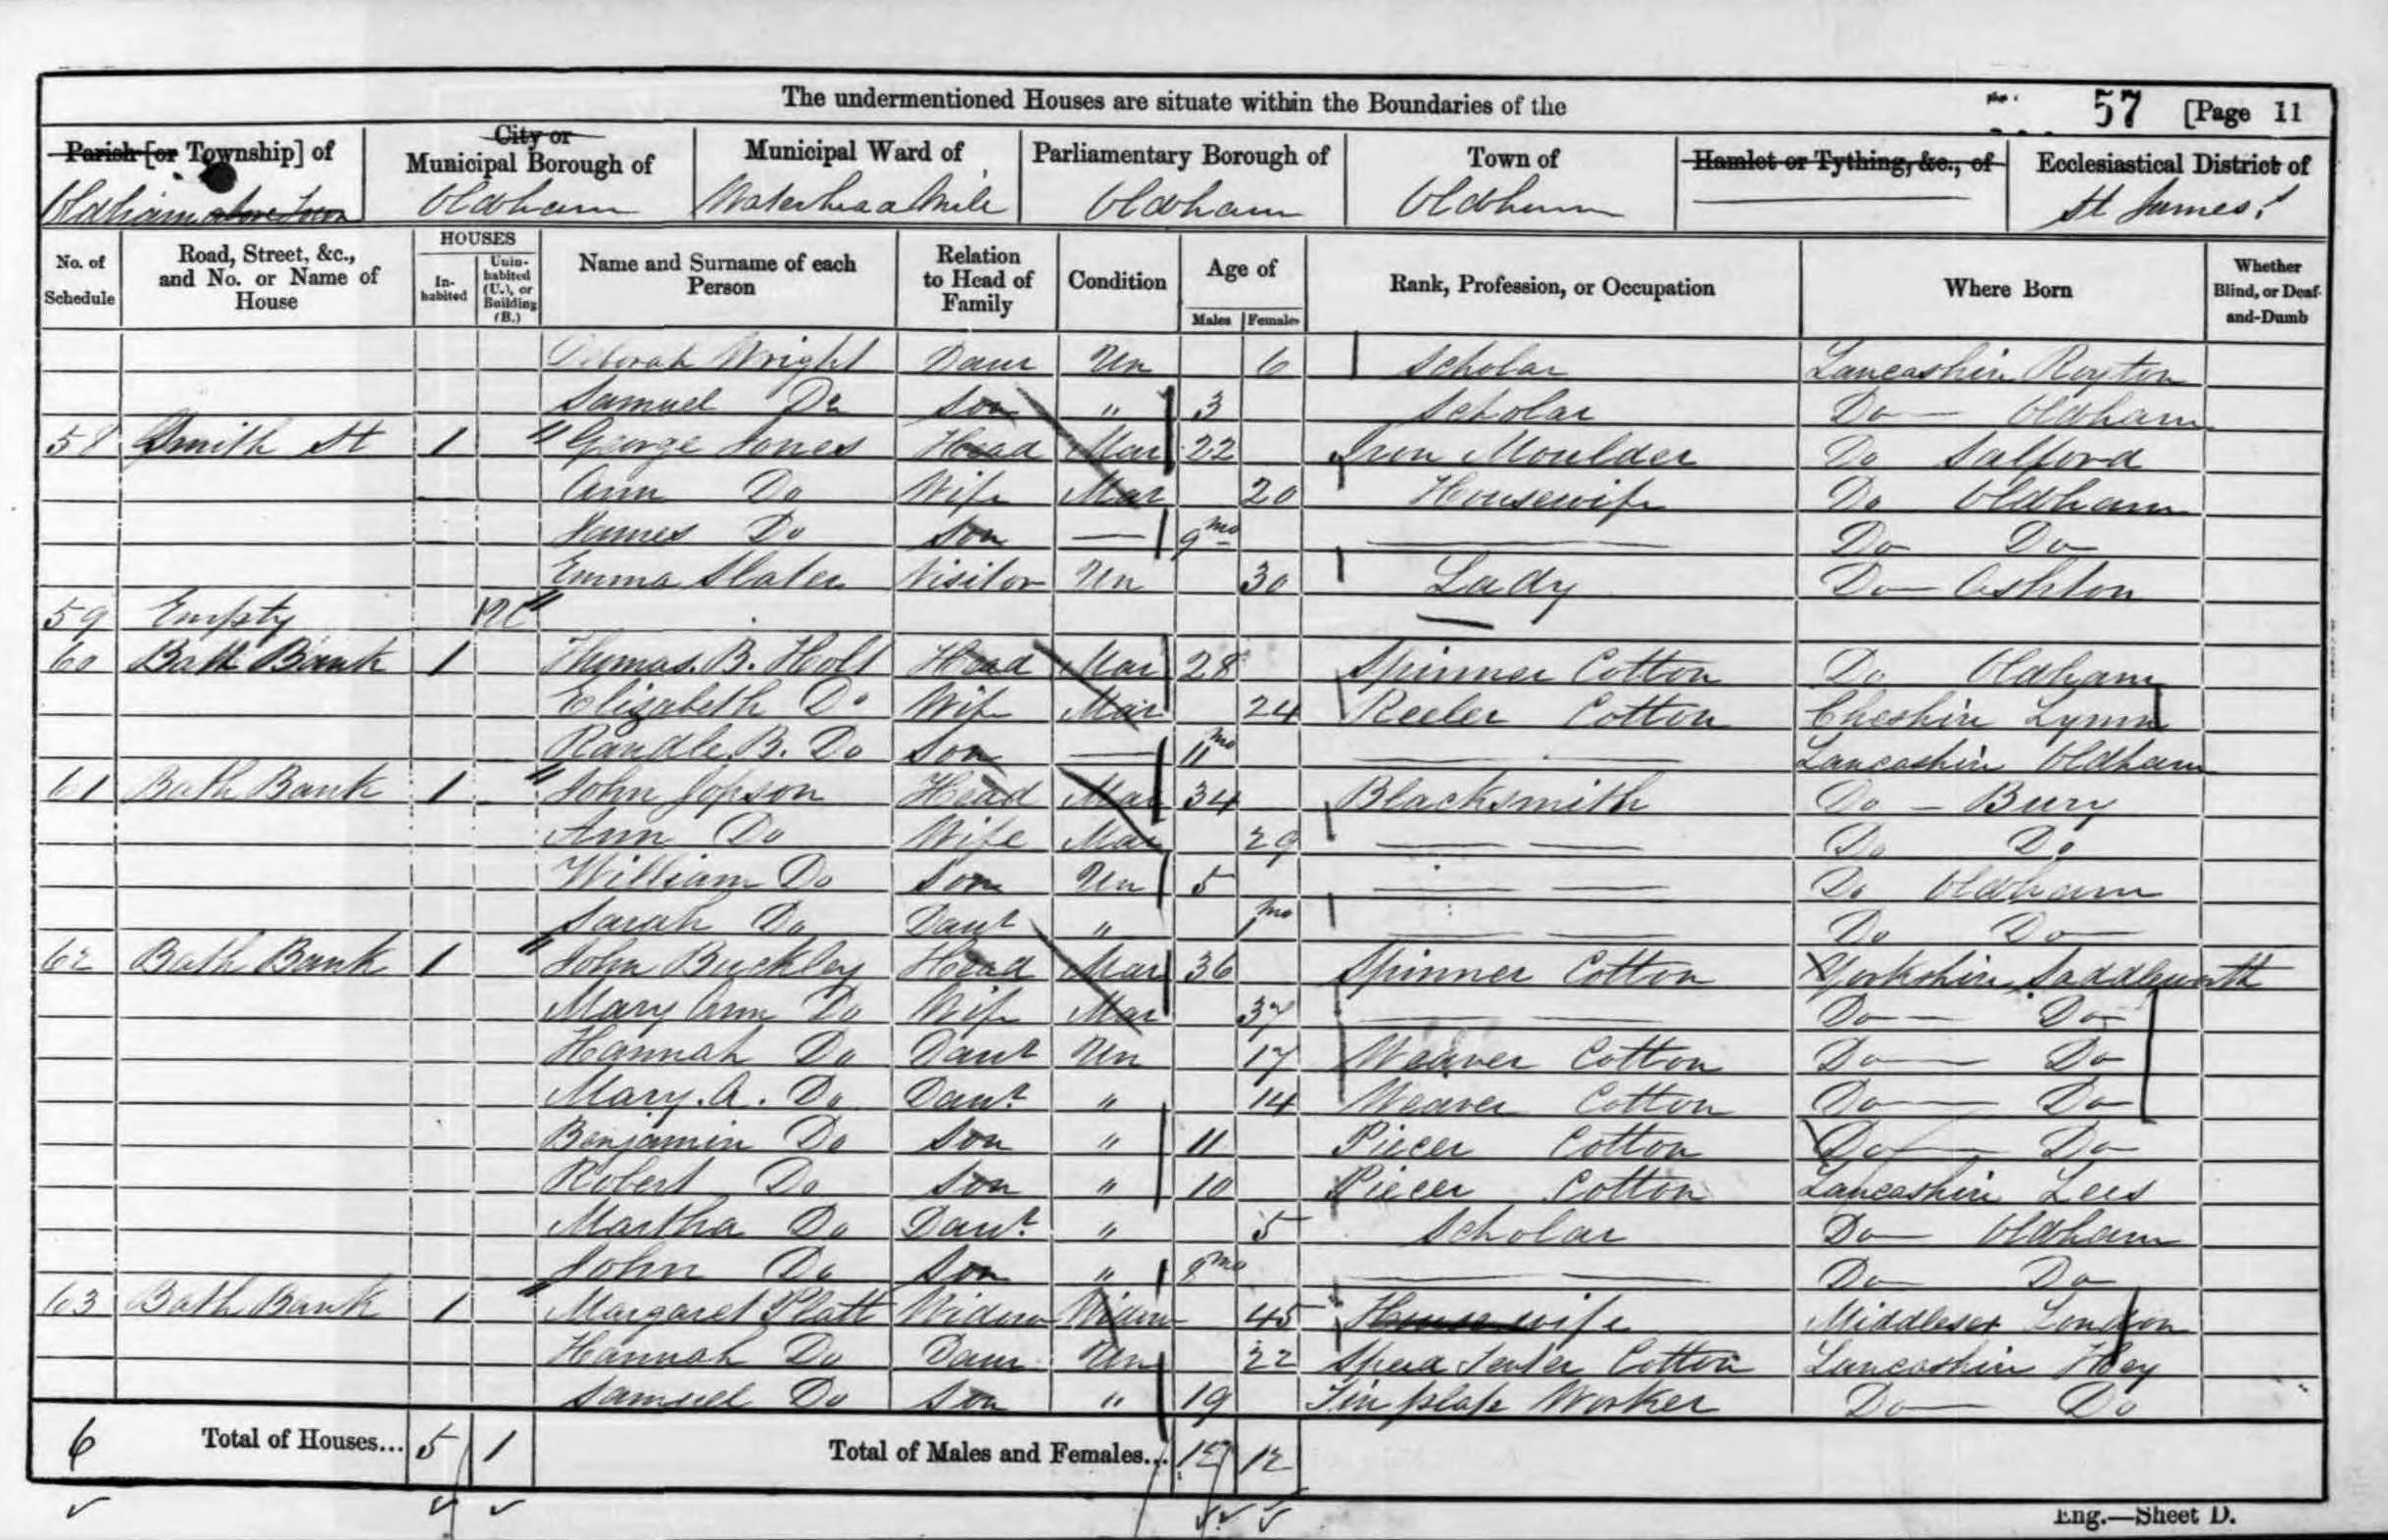 The undermentioned Houses are situate within the Boundaries of the 57 [Page 11
Parish [or Township] of City or Municipal Borough of Municipal Ward of Parliamentary Borough of Town of Hamlet or Tything, &c., of Ecclesiastical District of
Oldham above Town Oldham Waterhead Mill Oldham Oldham St James's
No. of Schedule Road, Street, &c., and No. or Name of House HOUSES In-habited Unin-habited (U.), or Building (B.) Name and Surname of each Person Relation to Head of Family Condition Age of Males Females Rank, Profession, or Occupation Where Born Whether Blind, or Deaf-and-Dumb
Deborah Wright Daur Un 6 Scholar Lancashire Royton
Samuel Do Son " 3 Scholar Do Oldham
58 Smith St 1 George Jones Head Mar 22 Iron Moulder Do Salford
Ann Do Wife Mar 20 Housewife Do Oldham
James Do Son — 9 mo Do Do
Emma Slater Visitor Un 30 Lady Do Ashton
59 Empty
60 Bath Bank 1 Thomas. B. Holt Head Mar 28 Spinner Cotton Do Oldham
Elizabeth Do Wife Mar 24 Reeler Cotton Cheshire Lymm
Randle B. Do Son — 11 mo Lancashire Oldham
61 Bath Bank 1 John Jopson Head Mar 34 Blacksmith Do - Bury
Ann Do Wife Mar 29 Do Do
William Do Son Un 5 Do Oldham
Sarah Do Daur " mo Do Do
62 Bath Bank 1 John Buckley Head Mar 36 Spinner Cotton Yorkshire Saddleworth
Mary Ann Do Wife Mar 37 Do Do
Hannah Do Daur Un 17 Weaver Cotton Do Do
Mary. A. Do Daur " 14 Weaver Cotton Do Do
Benjamin Do Son " 11 Piecer Cotton Do Do
Robert Do Son " 10 Piecer Cotton Lancashire Lees
Martha Do Daur " 5 Scholar Do Oldham
John Do Son " 8 mo Do Do
63 Bath Bank 1 Margaret Platt Widow Widow 45 Housewife Middlesex London
Hannah Do Daur Un 22 Cotton Lancashire Hey
Samuel Do Son " 19 Tin plate Worker Do Do
6 Total of Houses... 5 1 Total of Males and Females... 12 12
Eng.—Sheet D.